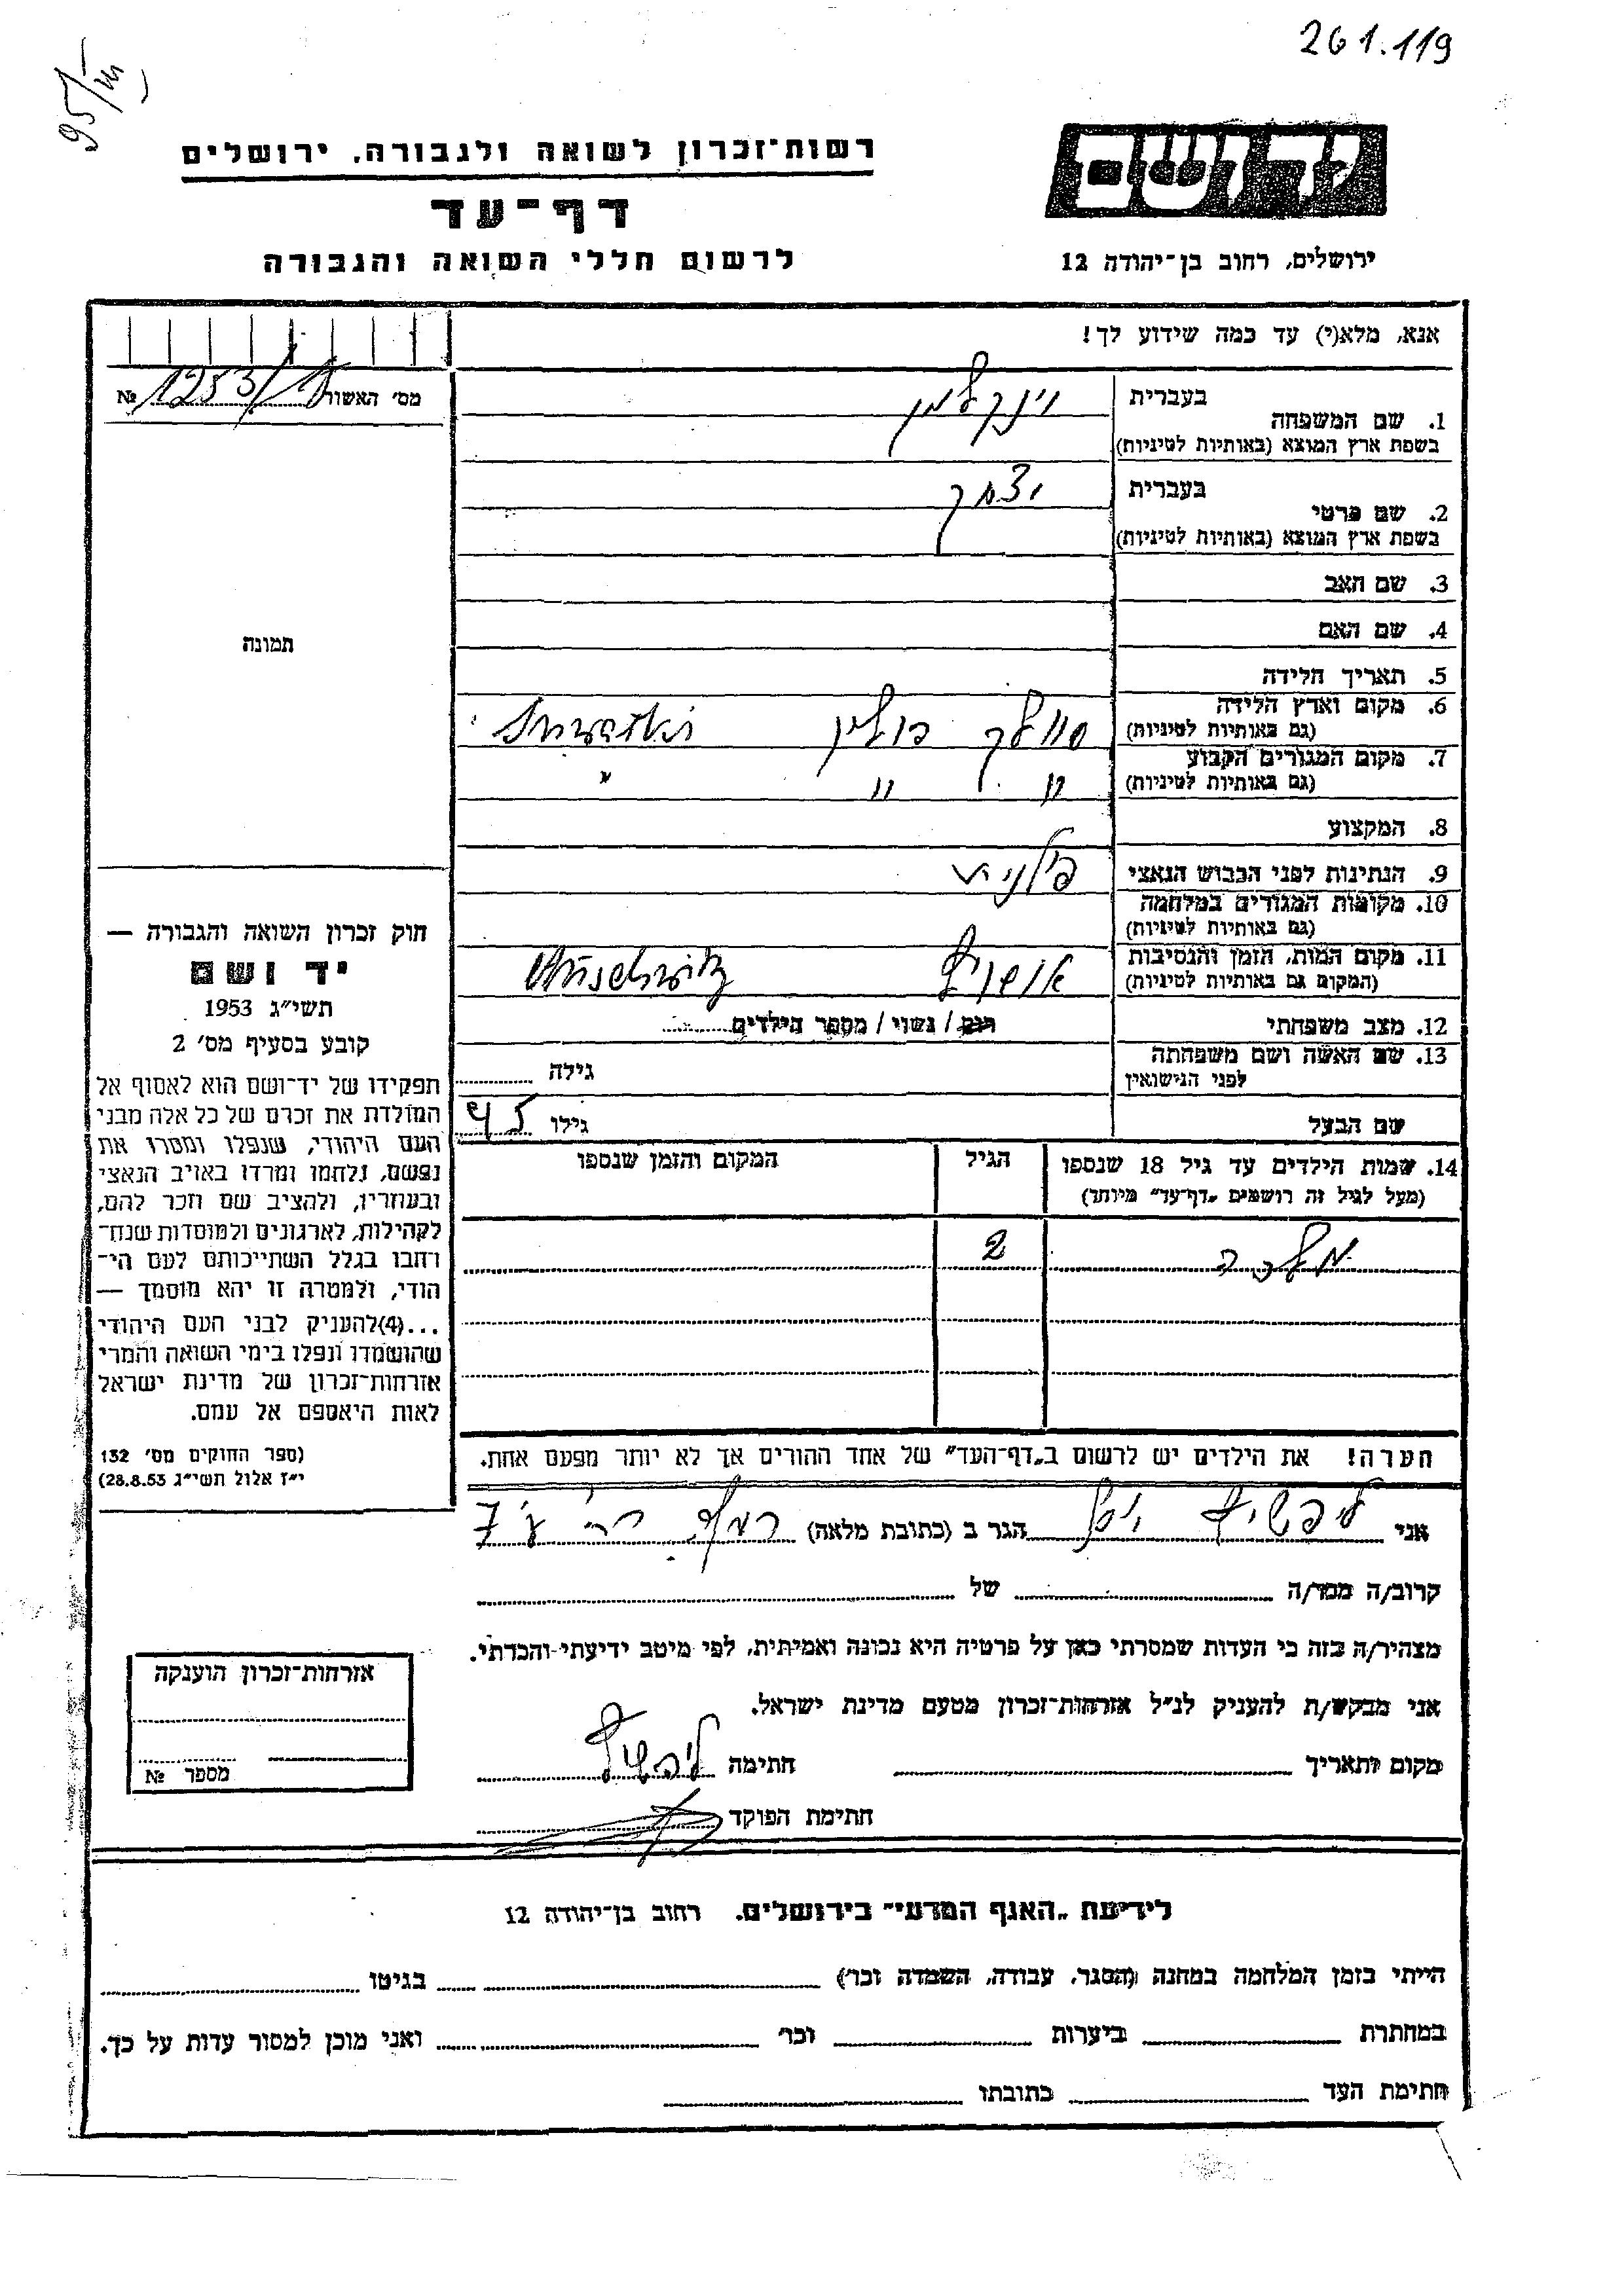 261.119
95/III
יד ושם
רשות־זכרון לשואה ולגבורה, ירושלים
דף־עד
ירושלים, רחוב בן־יהודה 12
לרשום חללי השואה והגבורה
אנא, מלא(י) עד כמה שידוע לך!
מס׳ האשור 1253/ №
בעברית וינקלמן
1. שם המשפחה
בשפת ארץ המוצא (באותיות לטיניות)
בעברית יצחק
2. שם פרטי
בשפת ארץ המוצא (באותיות לטיניות)
3. שם האב
4. שם האם
תמונה
5. תאריך הלידה
6. מקום וארץ הלידה
(גם באותיות לטיניות) סוולק פולין Suwałki
7. מקום המגורים הקבוע
(גם באותיות לטיניות) " " "
8. המקצוע
9. הנתינות לפני הכבוש הנאצי פולנית
10. מקומות המגורים במלחמה
(גם באותיות לטיניות)
11. מקום המות, הזמן והנסיבות
(המקום גם באותיות לטיניות) אושויץ Auschwitz
12. מצב משפחתי רוק / נשוי / מספר הילדים
13. שם האשה ושם משפחתה
לפני הנישואין גילה
שם הבעל גילו 45
14. שמות הילדים עד גיל 18 שנספו הגיל המקום והזמן שנספו
(מעל לגיל זה רושמים „דף־עד״ מיוחד)
מלכה 2
הערה! את הילדים יש לרשום ב„דף־העד״ של אחד ההורים אך לא יותר מפעם אחת.
חוק זכרון השואה והגבורה —
יד ושם
תשי״ג 1953
קובע בסעיף מס׳ 2
תפקידו של יד־ושם הוא לאסוף אל
המולדת את זכרם של כל אלה מבני
העם היהודי, שנפלו ומסרו את
נפשם, נלחמו ומרדו באויב הנאצי
ובעוזריו, ולהציב שם וזכר להם,
לקהילות, לארגונים ולמוסדות שנח־
רחבו בגלל השתייכותם לעם הי־
הודי, ולמטרה זו יהא מוסמך —
...(4)להעניק לבני העם היהודי
שהושמדו ונפלו בימי השואה והמרי
אזרחות־זכרון של מדינת ישראל
לאות היאספם אל עמם.
(ספר החוקים מס׳ 132
י״ז אלול תשי״ג 28.8.53)
אני ליפשיץ הגר ב (כתובת מלאה)
קרוב/ה ממר/ה של
מצהיר/ה בזה כי העדות שמסרתי כאן על פרטיה היא נכונה ואמיתית, לפי מיטב ידיעתי והכרתי.
אני מבקש/ת להעניק לנ״ל אזרחות־זכרון מטעם מדינת ישראל.
מקום ותאריך חתימה ליפשיץ
חתימת הפוקד
אזרחות־זכרון הוענקה
מספר №
לידיעת „האגף המדעי״ בירושלים. רחוב בן־יהודה 12
הייתי בזמן המלחמה במחנה (הסגר, עבודה, השמדה וכר׳) בגיטו
במחתרת ביערות וכר׳ ואני מוכן למסור עדות על כך.
חתימת העד כתובתו